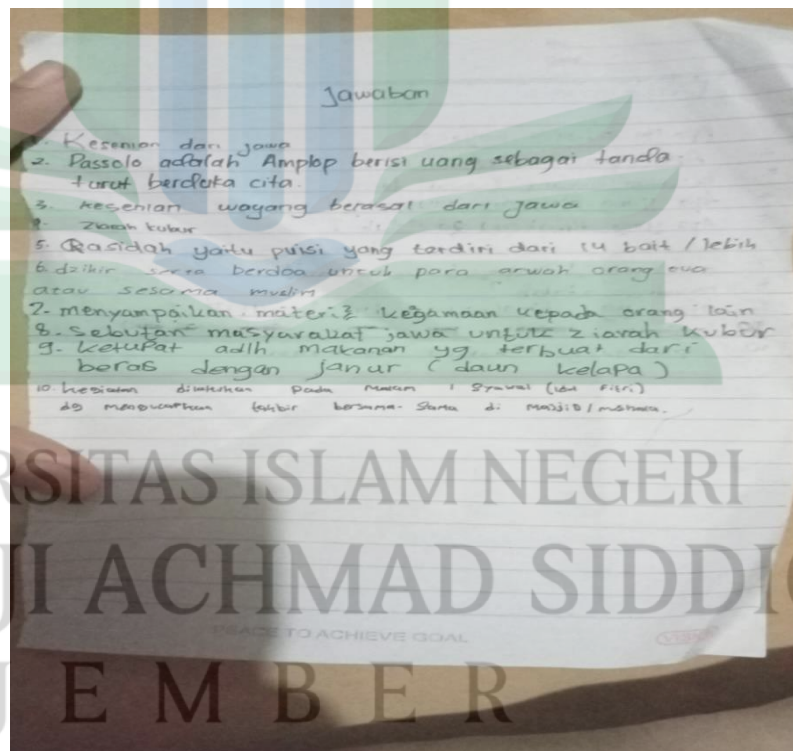 Jawaban
1. Kesenian dari jawa
2. Passolo adalah Amplop berisi uang sebagai tanda
turut berduka cita.
3. kesenian wayang berasal dari Jawa
4. Ziarah kubur
5. Qasidah yaitu puisi yang terdiri dari 14 bait / lebih
6. dzikir serta berdoa untuk para arwah orang tua
atau sesama muslim
7. menyampaikan materi2 kegamaan kepada orang lain
8. Sebutan masyarakat jawa untuk ziarah kubur
9. Ketupat adlh makanan yg terbuat dari
beras dengan janur (daun kelapa)
10. kegiatan dilakukan pada malam 1 Syawal (idul Fitri)
dg mengucapkan takbir bersama-sama di Masjid / mushola.
RSITAS ISLAM NEGERI
JI ACHMAD SIDDI
TO ACHIEVE GOAL
EMBER